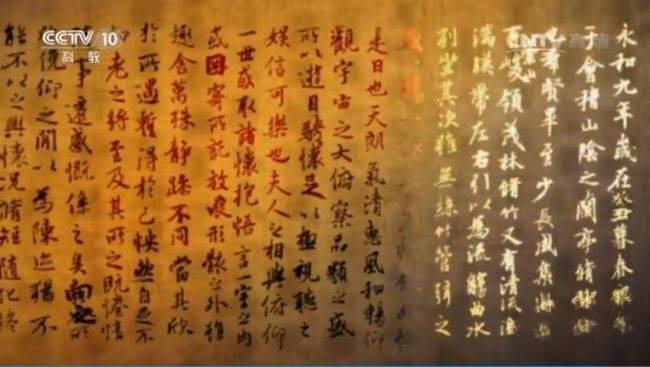 CCTV 10
科教
高清
永和九年歲在癸丑暮春
于會稽山陰之蘭亭脩禊
羣賢畢至少長咸集
峻領茂林脩竹又有清流激
湍暎帶左右引以為流觴曲水
列坐其次雖無絲竹管弦之
是日也天朗氣清惠風和暢仰
觀宇宙之大俯察品類之盛
所以遊目騁懷足以極視聽之
娛信可樂也夫人之相與俯仰
一世或取諸懷抱悟言一室之內
或因寄所託放浪形骸之外雖
趣舍萬殊靜躁不同當其欣
於所遇暫得於己怏然自足不
老之將至及其所之既惓情
事遷感慨係之矣向之所
俛仰之間以為陳迹猶不
能不以之興懷況脩短隨化終